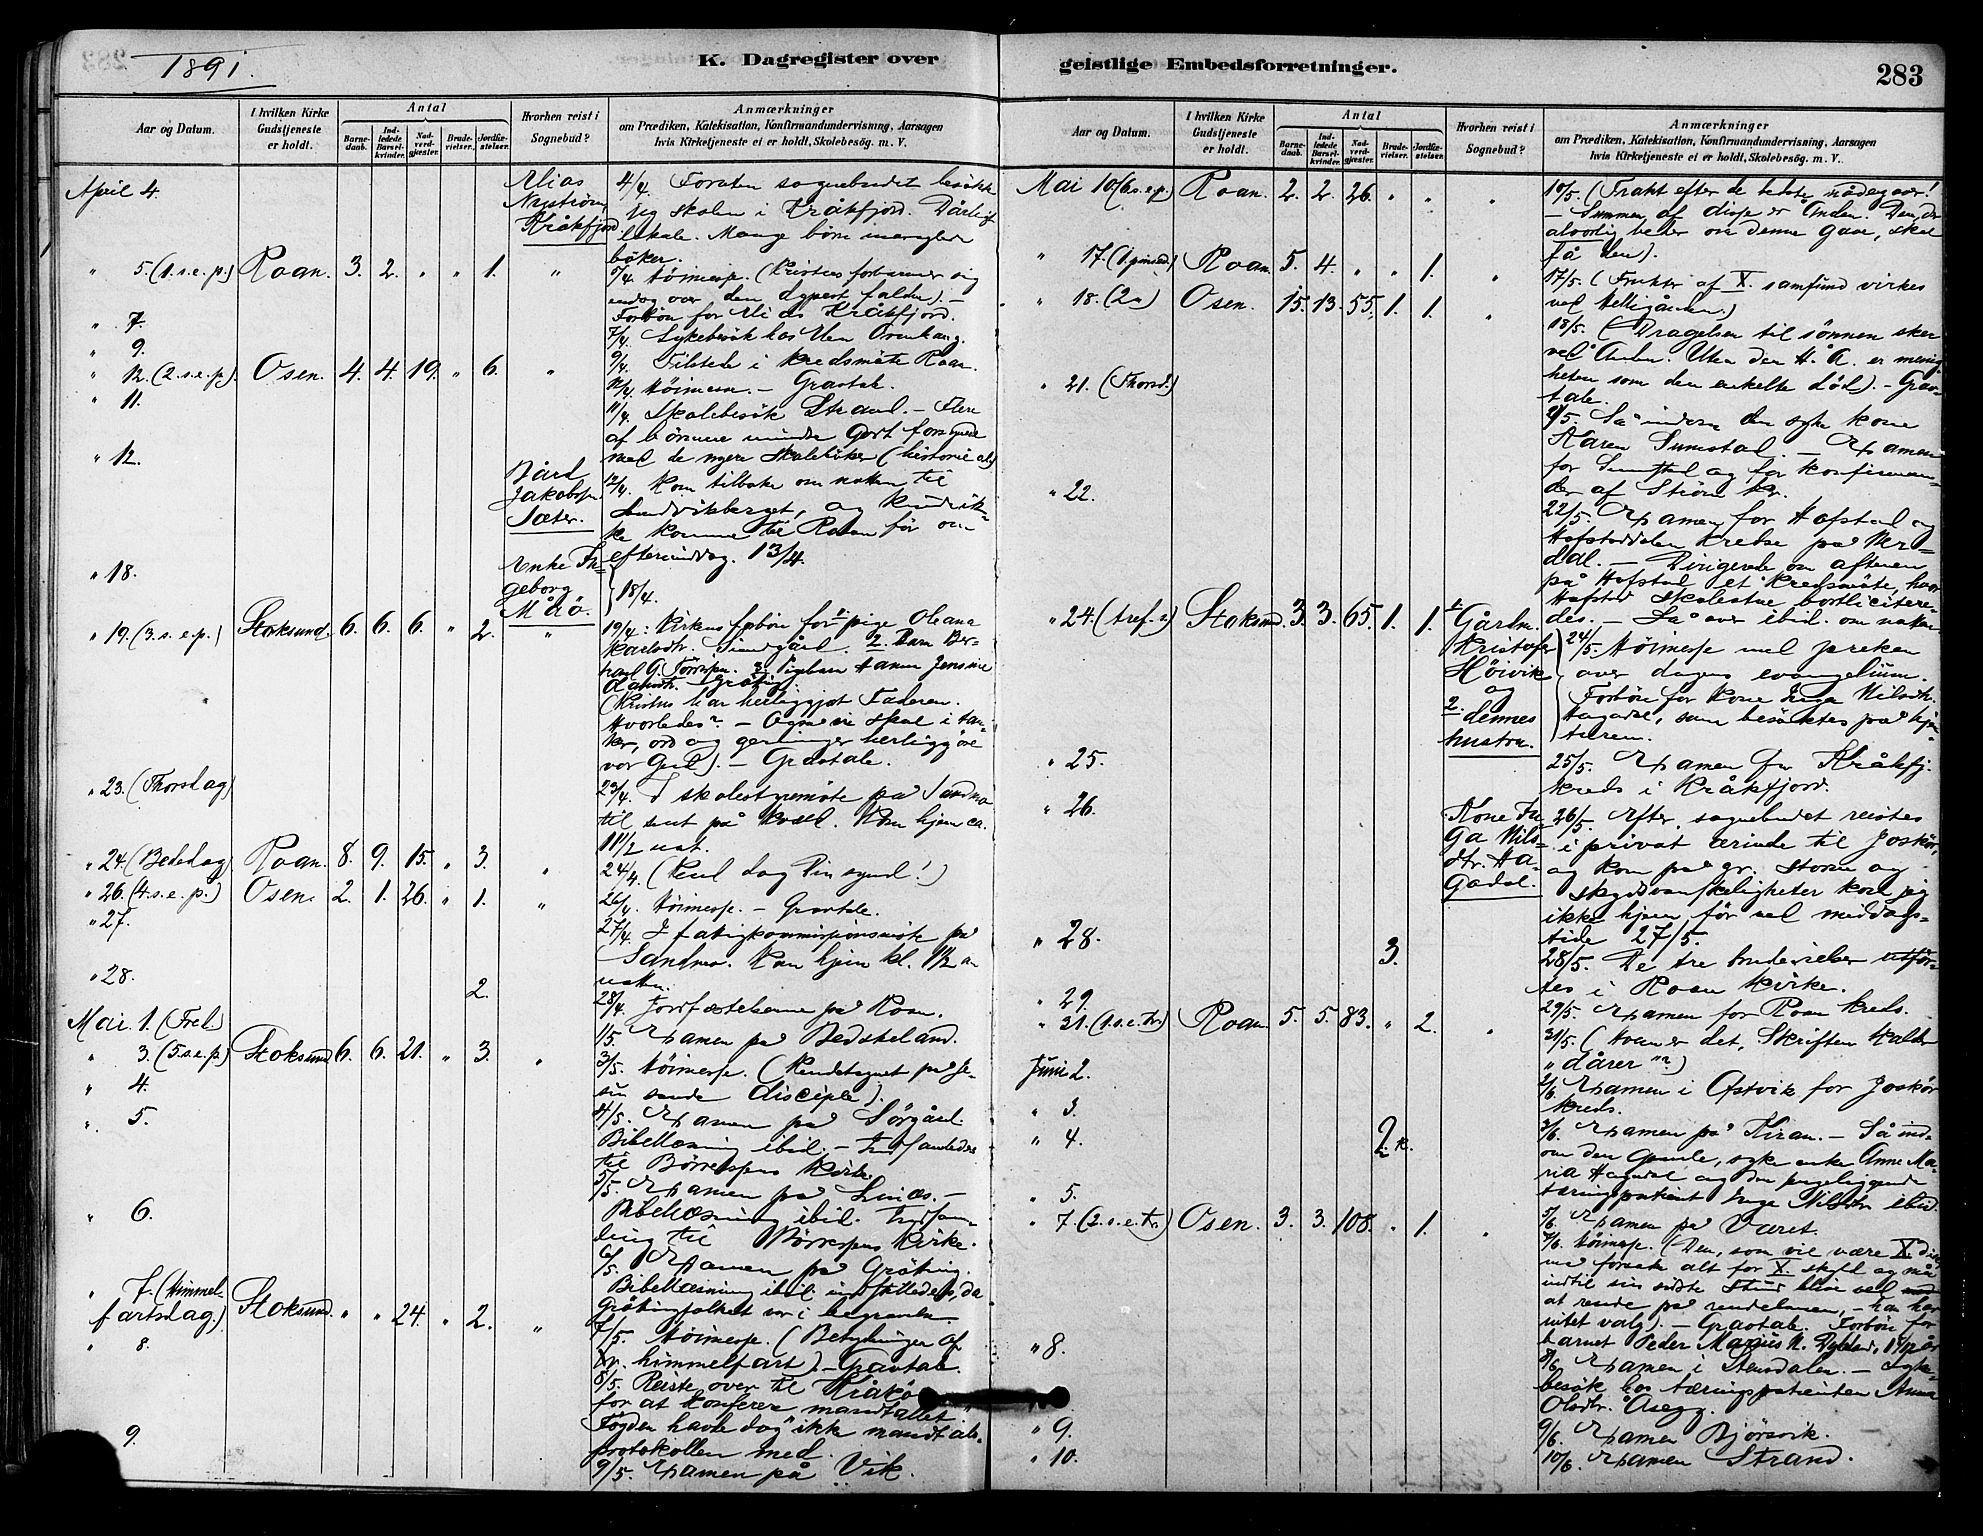 1891.
K. Dagregister over
Aar og Datum.
I hvilken Kirke Gudstjeneste er holdt.
Antal
Barnedaab.
Indledede Barselkvinder.
Nadverdgjester.
Brudevielser.
Jordfæstelser.
Hvorhen reist i Sognebud?
Anmærkninger
om Prædiken, Katekisation, Konfirmandundervisning, Aarsagen
hvis Kirketjeneste ei er holdt, Skolebesøg. m. V.
April 4.
Elias
Kråkfjord
4/4. Foruten sognebudet besøkte
jeg skolen i Kråkfjord. Dårligt
lokale. Mange børn manglede
bøker.
" 5. (1. s. e. p.) Roan. 3. 2. " " 1. "
5/4. Høimesse. (Kristus forbarmer sig
endog over den dypest faldne). –
Forbøn for Elias Kråkfjord.
" 7.
7/4. Sykebesøk hos
" 9.
9/4. Tilstede i kredsmøte Roan.
" 12. (2. s. e. p.) Osen. 4. 4. 19. " 6. "
12/4. Høimesse. – Gravtale.
" 11.
11/4. Skolebesøk Strand. – Flere
af børnene mindre godt forsynede
med de nyere skolebøker (historie
" 12.
Bård
Jakobsen
Sæter.
12/4. Kom tilbake om natten til
og kunde ik-
ke komme til Roan før om
eftermiddag. 13/4.
" 18.
Enke In-
geborg
Måø.
18/4.
" 19. (3. s. e. p.) Stoksund. 6. 6. 6. " 2. "
19/4: Kirkens forbøn for 1. pige Oleana
Karlsdtr. 2. Barn Ber-
3. Pigebarn Hanna Jensine
Gråting.
(Kristus har herliggjort Faderen.
Hvorledes? – Også vi skal i tan-
ker, ord og gerninger herliggjøre
vor Gud). – Gravtale.
" 23. (Thorsdag)
23/4. I skolestyremøte på Sandnes
til sent på kveld. Kom hjem ca.
11 1/2 nat.
" 24. (Bededag) Roan. 8. 9. 15. " 3. "
24/4. (Kend dog din synd!)
" 26. (4. s. e. p.) Osen. 2. 1. 26. " 1. "
26/4. Høimesse. – Gravtale.
" 27.
27/4. I fatigkommissionsmøte på
Sandnes. Kom hjem kl. 1 1/2 om
natten.
" 28. 2.
28/4. Jordfæstelserne på Roan.
Mai 1. (Fred.)
1/5. Examen på Beskeland.
" 3. (5. s. e. p.) Stoksund. 6. 6. 21. " 3. "
3/5. Høimesse. (Kendetegnet på Je-
su sande disciple).
" 4.
4/5. Examen på Sørgård.
Bibellæsning ibid. – Indsamledes
til Børresens kirke.
" 5.
5/5. Examen på Linæs. –
Bibellæsning ibid. Indsam-
ling til Børresens kirke.
" 6.
6/5. Examen på Gråting.
Bibellæsning ibid. indstilledes, da
Gråtingfolket var i begravelse.
" 7. (Himmel-
fartsdag.) Stoksund. " " 24. " 2. "
7/5. Høimesse. (Betydningen af
Kr. himmelfart). – Gravtale.
" 8.
8/5. Reiste over til Kråkø
for at konferere mandtallet.
Fogden havde dog ikke mandtals-
protokollen med.
9.
9/5. Examen på Vik.
geistlige Embedsforretninger.
283
Aar og Datum.
I hvilken Kirke Gudstjeneste er holdt.
Antal
Barnedaab.
Indledede Barselkvinder.
Nadverdgjester.
Brudevielser.
Jordfæstelser.
Hvorhen reist i Sognebud?
Anmærkninger
om Prædiken, Katekisation, Konfirmandundervisning, Aarsagen
hvis Kirketjeneste ei er holdt, Skolebesøg. m. V.
Mai 10. (6. s. e. p.) Roan. 2. 2. 26. " " "
10/5. (Trakt efter de bedste nådegaver!
– Summen af disse er Ånden. Den, der
alvorlig beder om denne gave, skal
få den).
" 17. (1. pinsed.) Roan. 5. 4. " " 1. "
17/5. (Frukter af X. samfund virkes
ved Helligånden.)
" 18. (2n) Osen. 15. 13. 55. 1. 1. "
18/5. (Dragelsen til sønnen sker
ved Ånden. Uten den H. Å. er menig-
heten som den enkelte død). – Grav-
tale.
" 21. (Thorsd.)
21/5. Så indom den syke kone
Karen Sumstad. – Examen
for Sumstad og for konfirman-
der af Strøm kr.
" 22.
22/5. Examen for Hofstad og
Hofstaddalen krebse på Mr-
dal. – Dirigerede om aftenen
på Hofstad et kredsmøte, hvor
Hofstad skolestue bortlicitere-
des. – Lå over ibid. om natten.
" 24. (tref. s.) Stoksund. 3. 3. 65. 1. 1.
1. Gårdm.
Kristofer
Høivik
og
2. dennes
hustru.
24/5. Høimesse med preken
over dagens evangelium.
Forbøn for kone Inga Nilsdtr.
Hagadal, som besøktes på hjem-
turen.
" 25.
25/5. Examen for Kråkfj.
kreds i Kråkfjord.
" 26.
Kone In-
ga Nils-
dtr. Ha-
gadal.
26/5. Efter sognebudet reistes
i privat ærinde til Joskør,
og kom på gr. storm og
skydsvanskeligheter kom jeg
ikke hjem før ved middags-
tide 27/5.
" 28. 3.
28/5. De tre brudevielser utfør-
tes i Roan kirke.
" 29.
29/5. Examen for Roan kreds.
" 31. (1. s. e. tr.) Roan. 5. 5. 83. " 2. "
31/5. (Hvem er det, Skriften kalder
"dårer"?)
Juni 2.
2/6. Examen i Østvik for Joskør
kreds.
" 3.
3/6. Examen på Kiran. – Så ind-
om den gamle, syke enke Anne Ma-
ria Hagadal og den sengeliggende
tæringspatient Inga Nilsdtr. ibid.
" 4. 2.
" 5.
5/6. Examen på Været.
" 7. (2. s. e. tr.) Osen. 3. 3. 108. " 1. "
7/6. Høimesse. (Den, som vil være X. disci-
må forsake alt for X. skyld og må
indtil sin sidste stund blive ved
at rende på rendebanen, – han har
intet valg). – Gravtale. Forbøn for
barnet Peder Marius
" 8.
8/6. Examen i Stensdalen. – Syke-
besøk hos tæringspatienten Anna
Olsdtr. Åsegg.
" 9.
9/6. Examen Bjørsvik.
" 10.
10/6. Examen Strand.